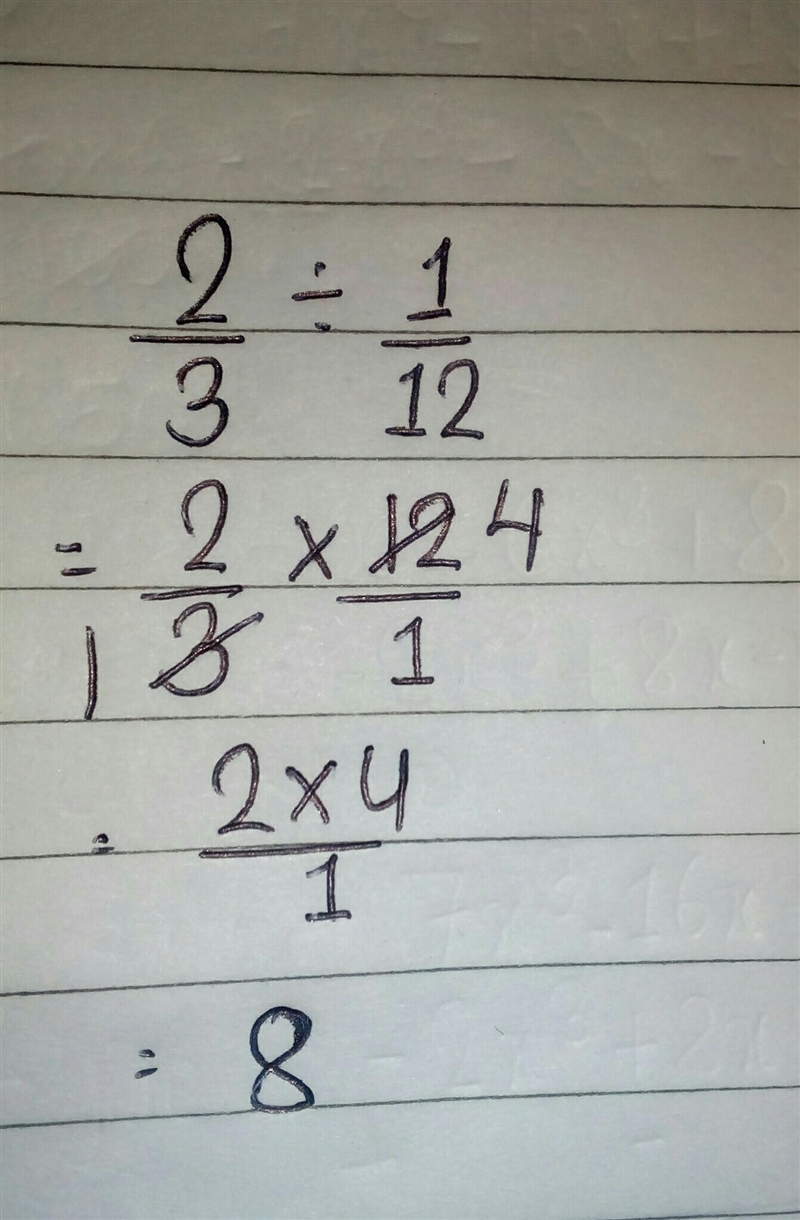 2/3 ÷ 1/12
= 2/3 × 12/1 4
1
= 2×4/1
= 8